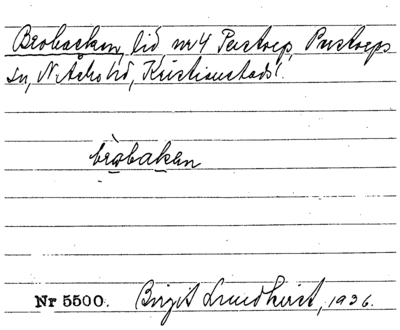 Brobacken, lid, nr 4 Perstorp, Perstorps
sn, N. Åsbo hd, Kristianstads l.
bròbakan
Nr 5500. Birgit Lundkvist, 1936.